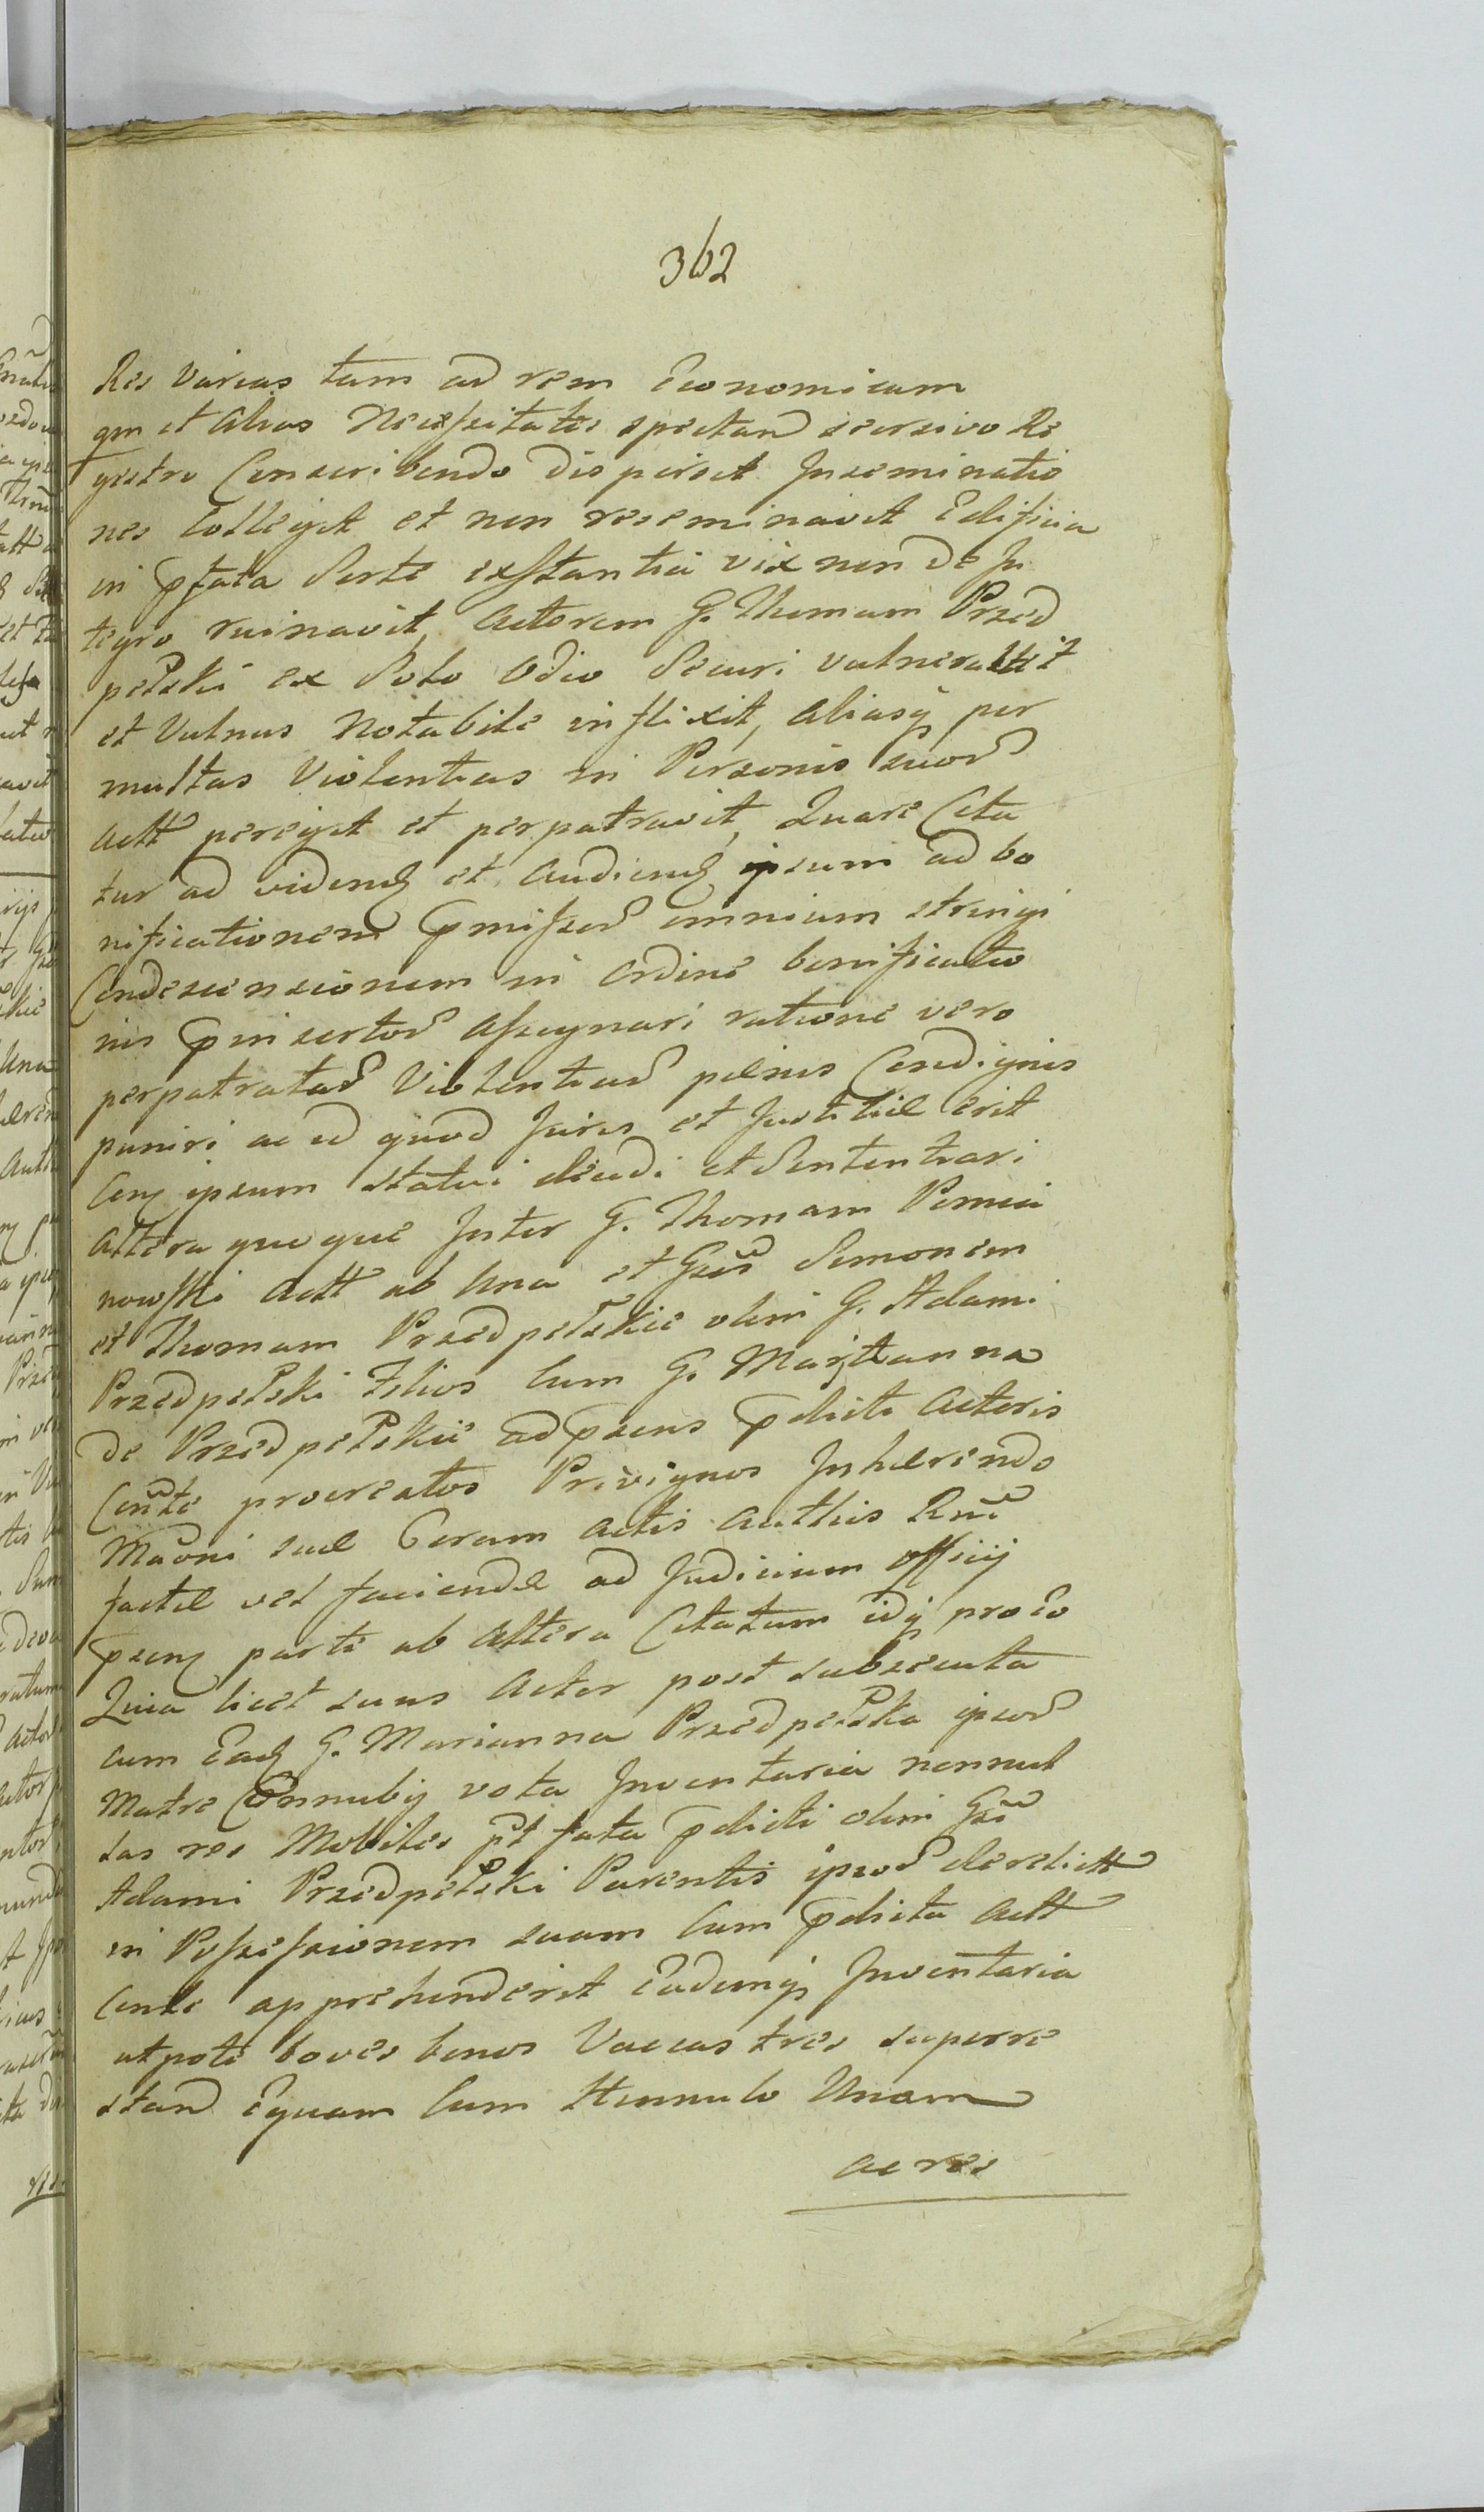 362
Res varias tam ad rem Economicam
qm et alias Necessitates spectand seorsivo Re
gestro Conscribendo dispersit Inseminatio
nes Collegit et non reseminavit Edificia
in pfata Sorte exstantia vix non de In
tegro ruinavit, Actorem G. Thomam Przed
pełski ex Solo Odio Securi vulneravit
et Vulnus Notabile inflixit, aliasq per
multas Violentias in Personis suor
Actt peregit et perpatravit, Quare Cita
tur ad videnq et Audienq ipsum ad bo
nificationem pmissor omnium stringi
Condescensionem in Ordine bonificatio
nis pinsertor Assegnari ratione vero
perpatratar Violentiar pænis Condignis
puniri ac id quod Juris et Justitiæ erit
Cenq ipsum statui decidi et Sententiari
Altera queque Inter G. Thomam Pomia
nowski Actt ab Una et Gsos Simonem
et Thomam Przedpełskie olim G. Adami
Przedpełski Filios Cum G. Marianna
de Przedpełskie ad psens pdicti Actoris
Conte procreatos Privignos Inhærendo
Maoni suæ Coram Actis Authis Rni
factæ vel faciendæ ad Judicium Officij
psenq parte ab Altera Citatum idq pro eo
Quia licet suus Actor post subsecuta
cum Eadq G. Marianna Przedpełska ipsor
Matre Connubij vota Inventaria nonnul
las res Mobiles pt fata pdicti olim Gsi
Adami Przedpełski Parentis ipsor derelictt
in Possessionem suam Cum pdicta Actt
Conte apprehenderit Eademq Inventaria
utpote boves binos Vaccas tres superre
stan Equam Cum Hinnulo Unam
ac res